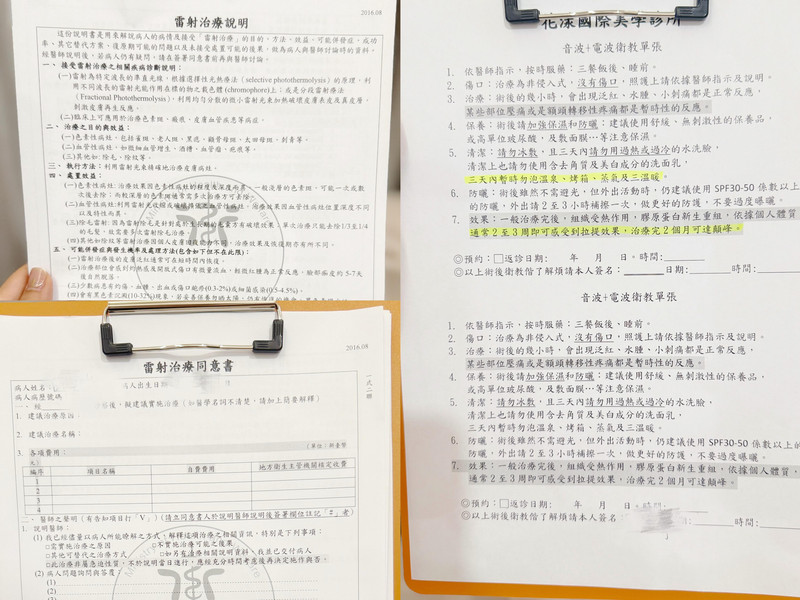 2016.08
雷射治療說明
這份說明書是用來解說病人的病情及接受「雷射治療」的目的、方法、效益、可能併發症、成功
率、其它替代方案、復原期可能的問題以及未接受處置可能的後果，做為病人與醫師討論時的資料。
經醫師說明後，若病人仍有疑問，請在簽署同意書前再與醫師討論。
一、接受雷射治療之相關疾病診斷說明：
(一)雷射為特定波長的準直光線，根據選擇性光熱療法(selective photothermolysis)的原理，利
用不同波長的雷射光能作用在標的物之載色體(chromophore)上；或是分段雷射療法
(Fractional Photothermolysis)，利用均勻分散的微小雷射光束加熱破壞皮膚表皮及真皮層，
刺激皮膚再生反應。
(二)臨床上可應用於治療色素斑、瘢痕、皮膚血管或惡等病症。
二、治療之目的與效益：
(一)色素性病灶，包括雀斑、老人斑、黑痣、顴骨母斑、太田母斑、刺青等。
(二)血管性病灶，如微細血管增生、酒糟、血管瘤、疤痕等。
(三)其他如：除毛、除紋等。
三、執行方法：利用雷射光束精確地治療皮膚病灶。
四、處置效益：
(一)色素性病灶：治療效果因色素性病灶的程度或深度而異，一般淺層的色素斑，可能一次或數
次後去除；而較深層的色素斑通常需多次治療方可去除。
以及特性而異。
(三)除毛雷射：因為雷射除毛是針對處於生長期的毛囊方有破壞效果，單次治療只能去除1/3至1/4
的毛髮，且需要多次雷射治療。
(四)其他如除紋等雷射治療因個人皮膚因我能力不同，治療效果及恢復期亦有所不同。
五、可能併發症與發生機率及處理方法(包含如下但不在此限)：
(一)雷射治療後的皮膚泛紅通常可在短時間內恢復。
後自然痊癒。
(三)少數病患有灼傷、血腫、出血或傷口皰疹(0.3-2%)或細菌感染(0.5-4.5%)。
2016.08
雷射治療同意書
病人姓名：
病人出生日
病人病歷號碼
一式二聯
一、經
療後，擬建議實施治療（如醫學名詞不清楚，請加上簡要解釋）
1. 建議治療原因：
2. 建議治療名稱：
3. 各項費用：
（單位：新臺幣
元）
編序 項目名稱 自費費用 地方衛生主管機關核定收費
1
2
3
4
二、醫師之聲明（有告知項目打「V」）(請立同意書人於說明醫師說明後簽署欄位註記「ˇ」者)
1. 說明醫師：
(1) 我已經儘量以病人所能瞭解之方式，解釋這項治療之相關資訊，特別是下列事項：
□需實施治療之原因 □不實施治療可能之後果
□其他可替代之治療方式 □如另有治療相關說明資料，我並已交付病人
□此治療非屬急迫性質，不於說明當日進行，應經充分時間考慮後再決定施作與否。
(2) 病人問題詢問與答覆：
(1)
(2)
花漾國際美學診所
音波+電波衛教單張
1. 依醫師指示，按時服藥：三餐飯後、睡前。
2. 傷口：治療為非侵入式，沒有傷口，照護上請依據醫師指示及說明。
3. 治療：術後的幾小時，會出現泛紅、水腫、小刺痛都是正常反應，
某些部位壓痛或是額頭轉移性疼痛都是暫時性的反應。
4. 保養：術後請加強保濕和防曬：建議使用舒緩、無刺激性的保養品，
或高單位玻尿酸，及敷面膜…等注意保濕。
5. 清潔：請勿冰敷，且三天內請勿用過熱或過冷的水洗臉，
清潔上也請勿使用含去角質及美白成分的洗面乳，
三天內暫時勿泡溫泉、烤箱、蒸氣及三溫暖。
6. 防曬：術後雖然不需避光，但外出活動時，仍建議使用 SPF30-50 係數以上
的防曬，外出請2至3小時補擦一次，做更好的防護，不要過度曝曬。
7. 效果：一般治療完後，組織受熱作用，膠原蛋白新生重組，依據個人體質
通常2至3周即可感受到拉提效果，治療完2個月可達顛峰。
◎預約：□返診日期： 年 月 日。時間：
◎以上術後衛教皆了解煩請本人簽名： 日期： 時間：
音波+電波衛教單張
1. 依醫師指示，按時服藥：三餐飯後、睡前。
2. 傷口：治療為非侵入式，沒有傷口，照護上請依據醫師指示及說明。
3. 治療：術後的幾小時，會出現泛紅、水腫、小刺痛都是正常反應，
某些部位壓痛或是額頭轉移性疼痛都是暫時性的反應。
4. 保養：術後請加強保濕和防曬：建議使用舒緩、無刺激性的保養品，
或高單位玻尿酸，及敷面膜…等注意保濕。
5. 清潔：請勿冰敷，且三天內請勿用過熱或過冷的水洗臉，
清潔上也請勿使用含去角質及美白成分的洗面乳，
三天內暫時勿泡溫泉、烤箱、蒸氣及三溫暖。
6. 防曬：術後雖然不需避光，但外出活動時，仍建議使用 SPF30-50 係數以上的
防曬，外出請2至3小時補擦一次，做更好的防護，不要過度曝曬。
7. 效果：一般治療完後，組織受熱作用，膠原蛋白新生重組，依據個人體質，
通常2至3周即可感受到拉提效果，治療完2個月可達顛峰。
◎預約：□返診日期： 年 月 日。時間：
◎以上術後衛教皆了解煩請本人簽名 日期： 時間：